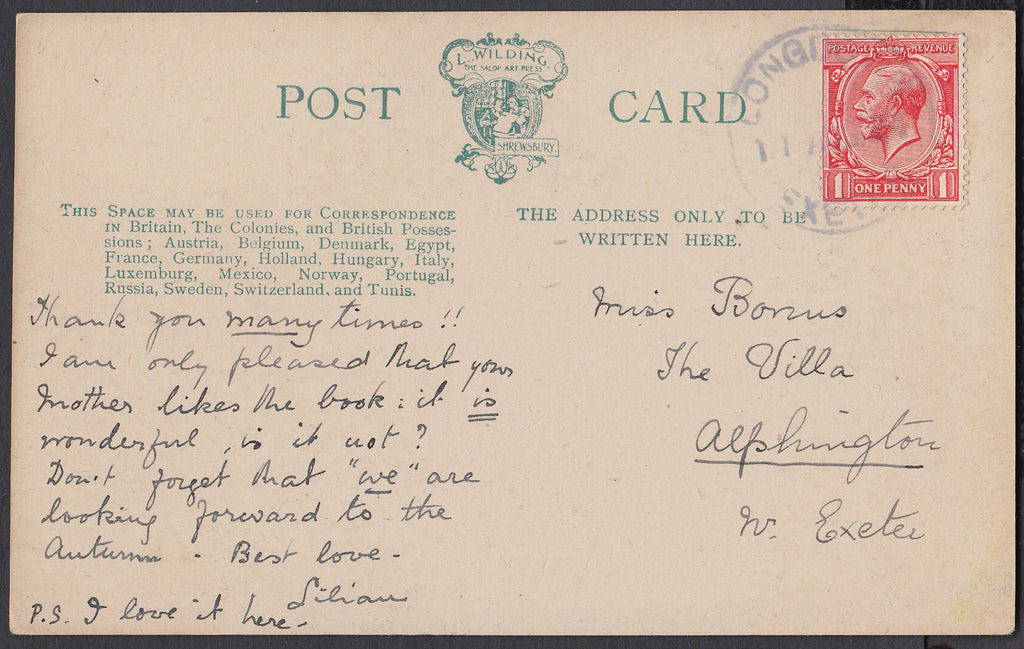 L. WILDING.
THE SALOP ART PRESS
SHREWSBURY.
POST CARD
LONG
11
EXE
POSTAGE REVENUE
1 ONE PENNY 1
THIS SPACE MAY BE USED FOR CORRESPONDENCE
IN Britain, The Colonies, and British Posses-
sions; Austria, Belgium, Denmark, Egypt,
France, Germany, Holland, Hungary, Italy,
Luxemburg, Mexico, Norway, Portugal,
Russia, Sweden, Switzerland, and Tunis.
THE ADDRESS ONLY TO BE
WRITTEN HERE.
Thank you many times!!
I am only pleased that your
Mother likes the book: it is
wonderful, is it not?
Don't forget that "we" are
looking forward to the
Autumn - Best love -
Lilian
P.S. I love it here -
Miss
The Villa
Alphington
Nr. Exeter